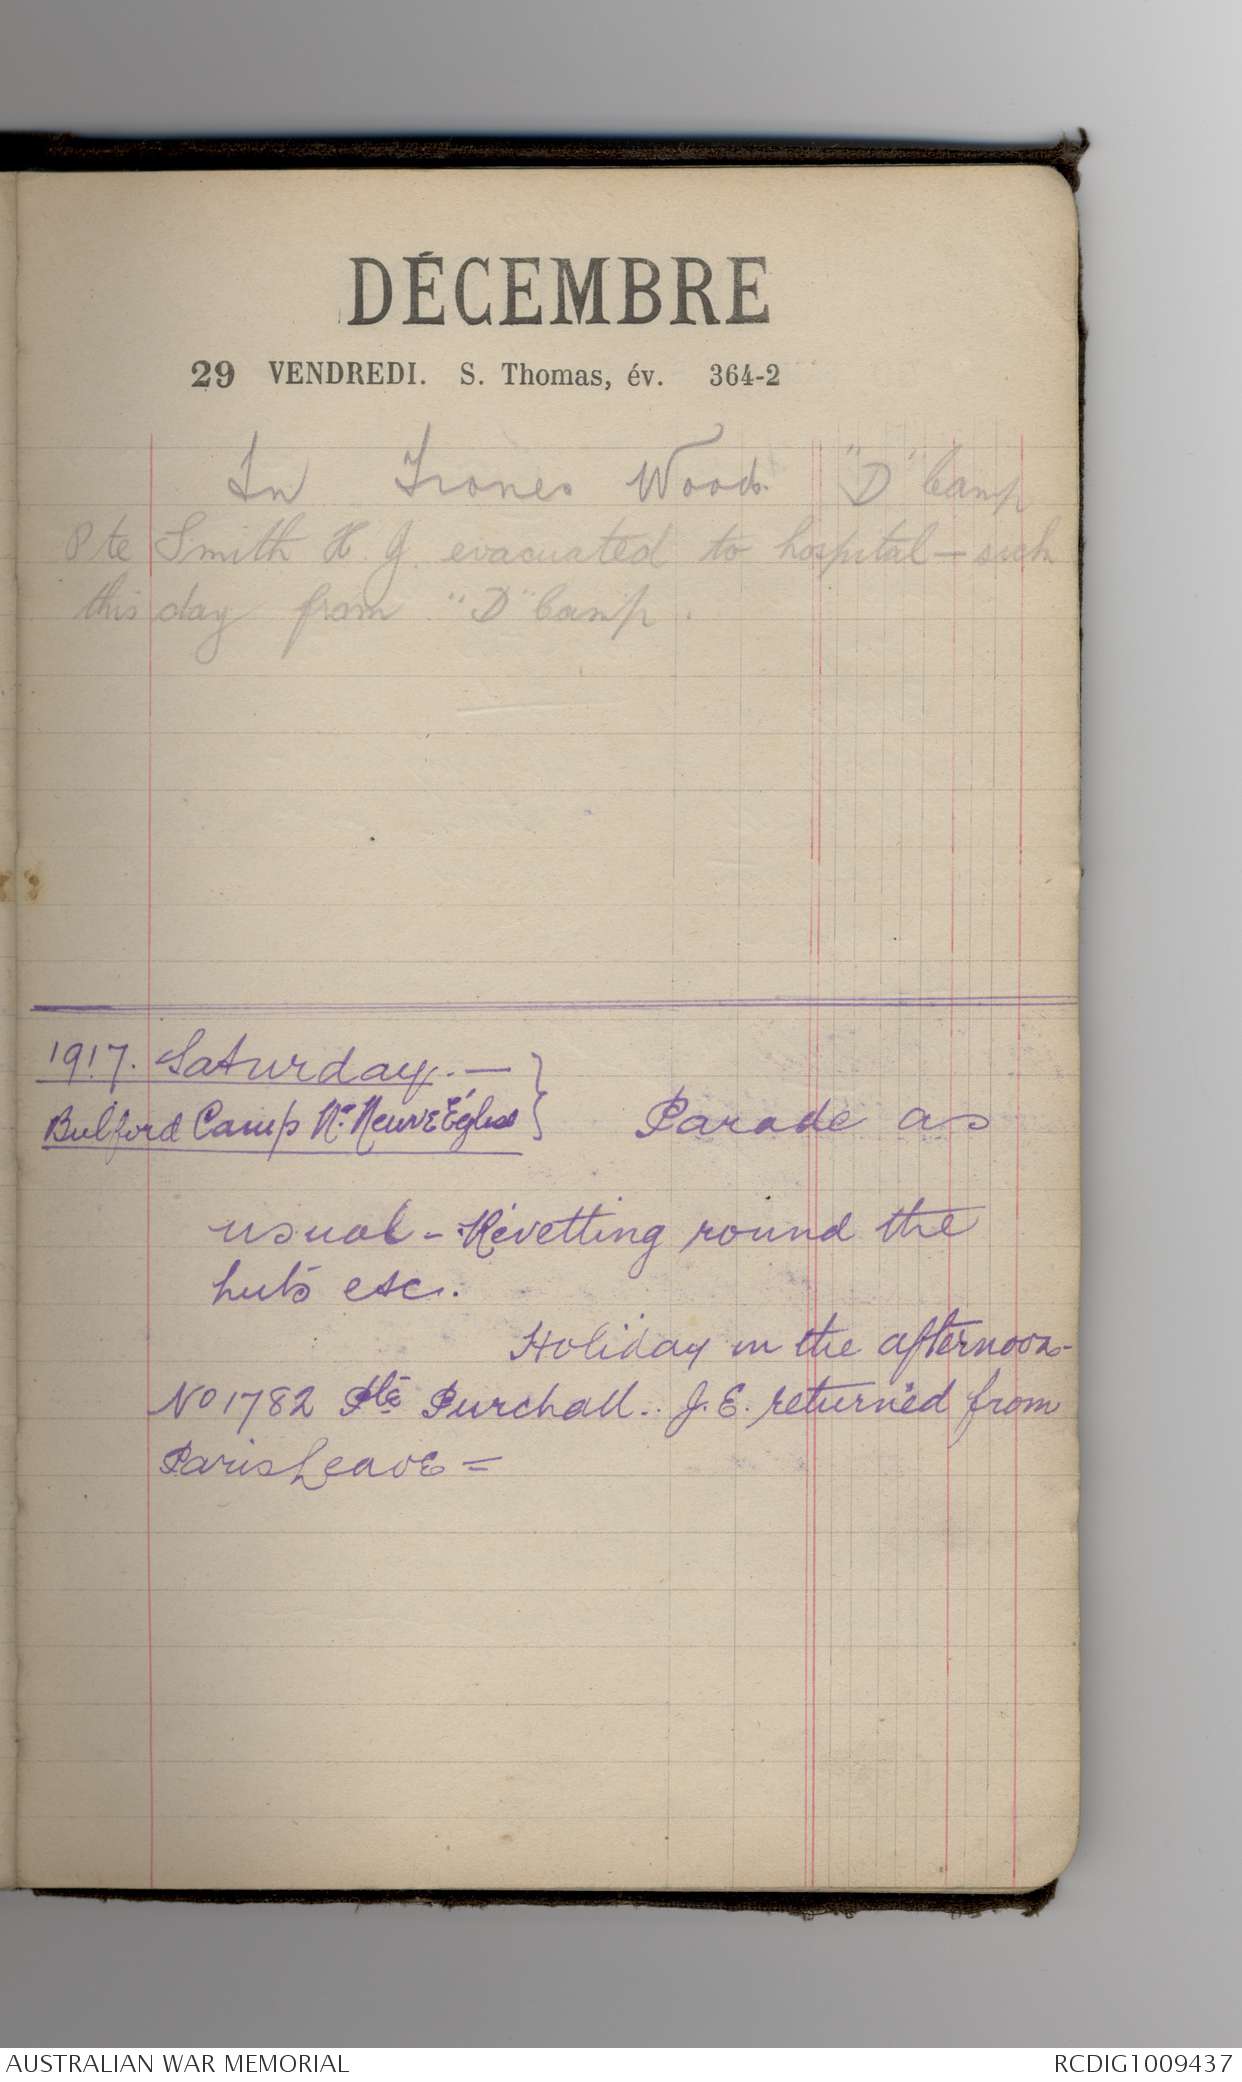 DÉCEMBRE
29 VENDREDI. S. Thomas, év. 364-2
In Trones Wood. "D" Camp
Pte Smith H. J. evacuated to hospital - sick
this day from "D" Camp.
1917. Saturday. —
Bulford Camp Nr. Neuve Église } Parade as
usual - Revetting round the
huts etc.
Holiday in the afternoon -
No 1782 Pte Purchall. J. E. returned from
Paris Leave =
AUSTRALIAN WAR MEMORIAL
RCDIG1009437